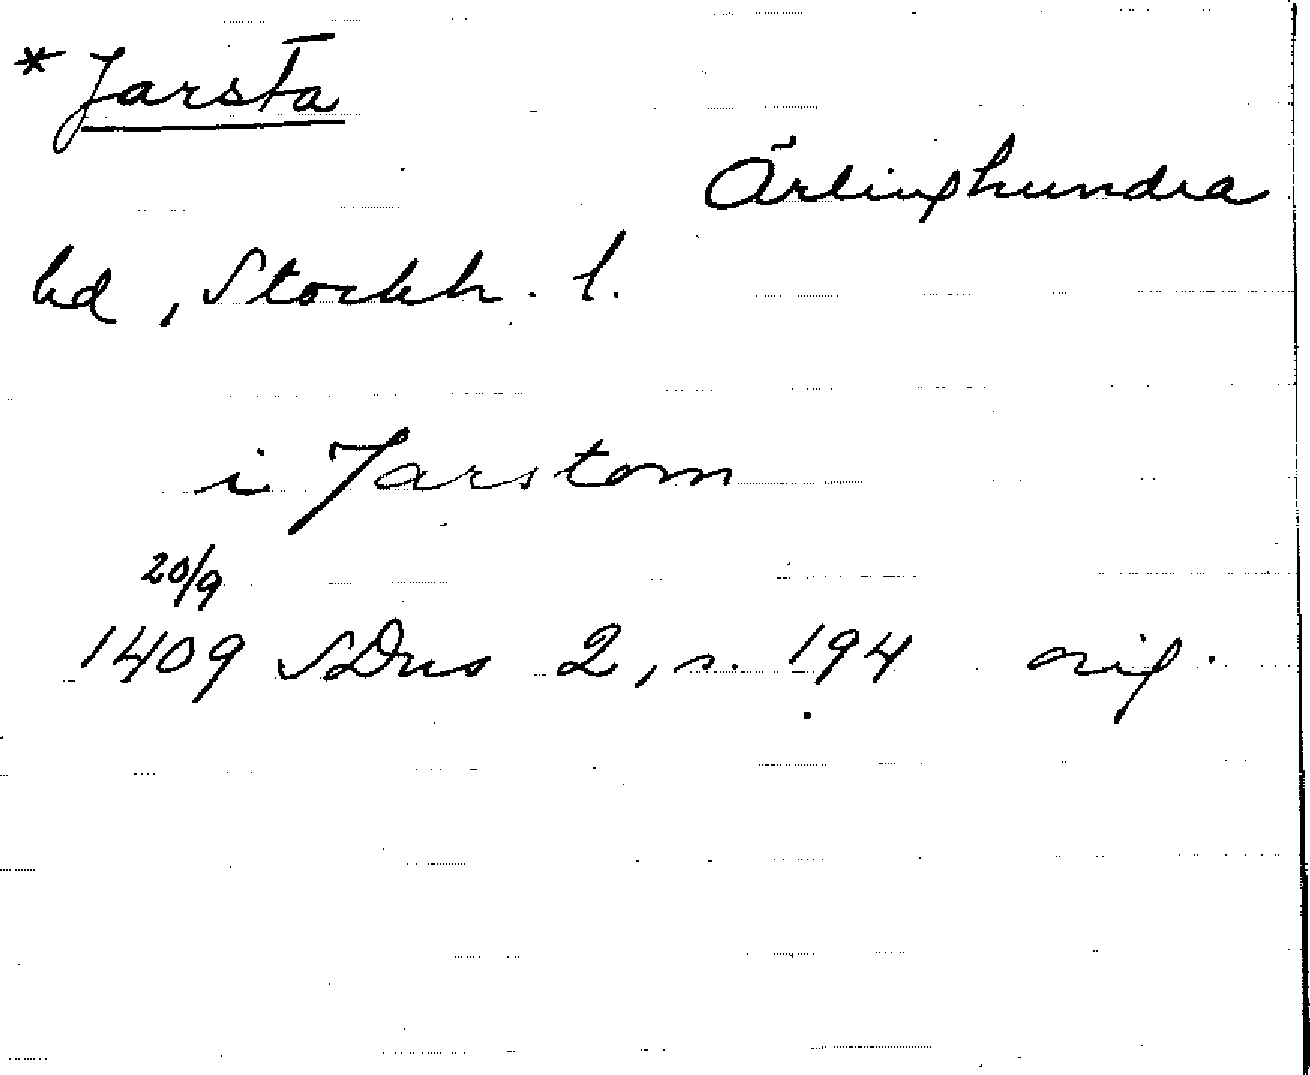 * Jarsta
Ärlinghundra
hd, Stockh. l.
i Jarstom
20/9
1409 SDns 2, s. 194 orig.